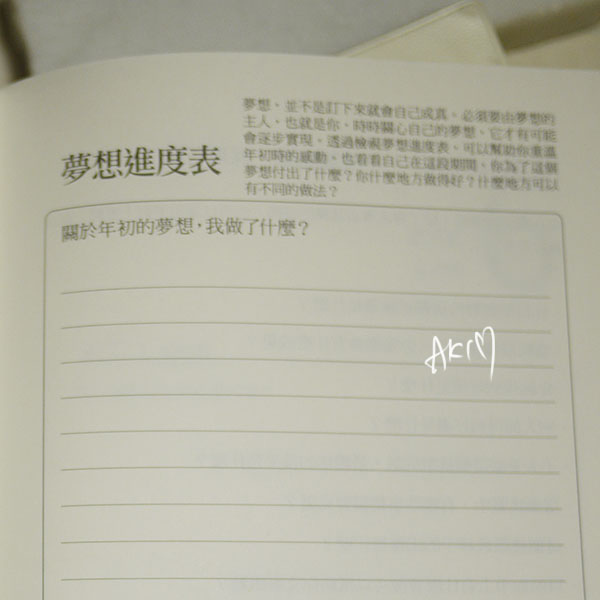 夢想進度表
夢想、並不是訂下來就會自己成真。必須要由夢想的
主人、也就是你，時時關心自己的夢想、它才有可能
會逐步實現。透過檢視夢想進度表、可以幫助你重溫
年初時的感動、也看看自己在這段期間、你為了這個
夢想付出了什麼？你什麼地方做得好？什麼地方可以
有不同的做法？
關於年初的夢想，我做了什麼？
AKI